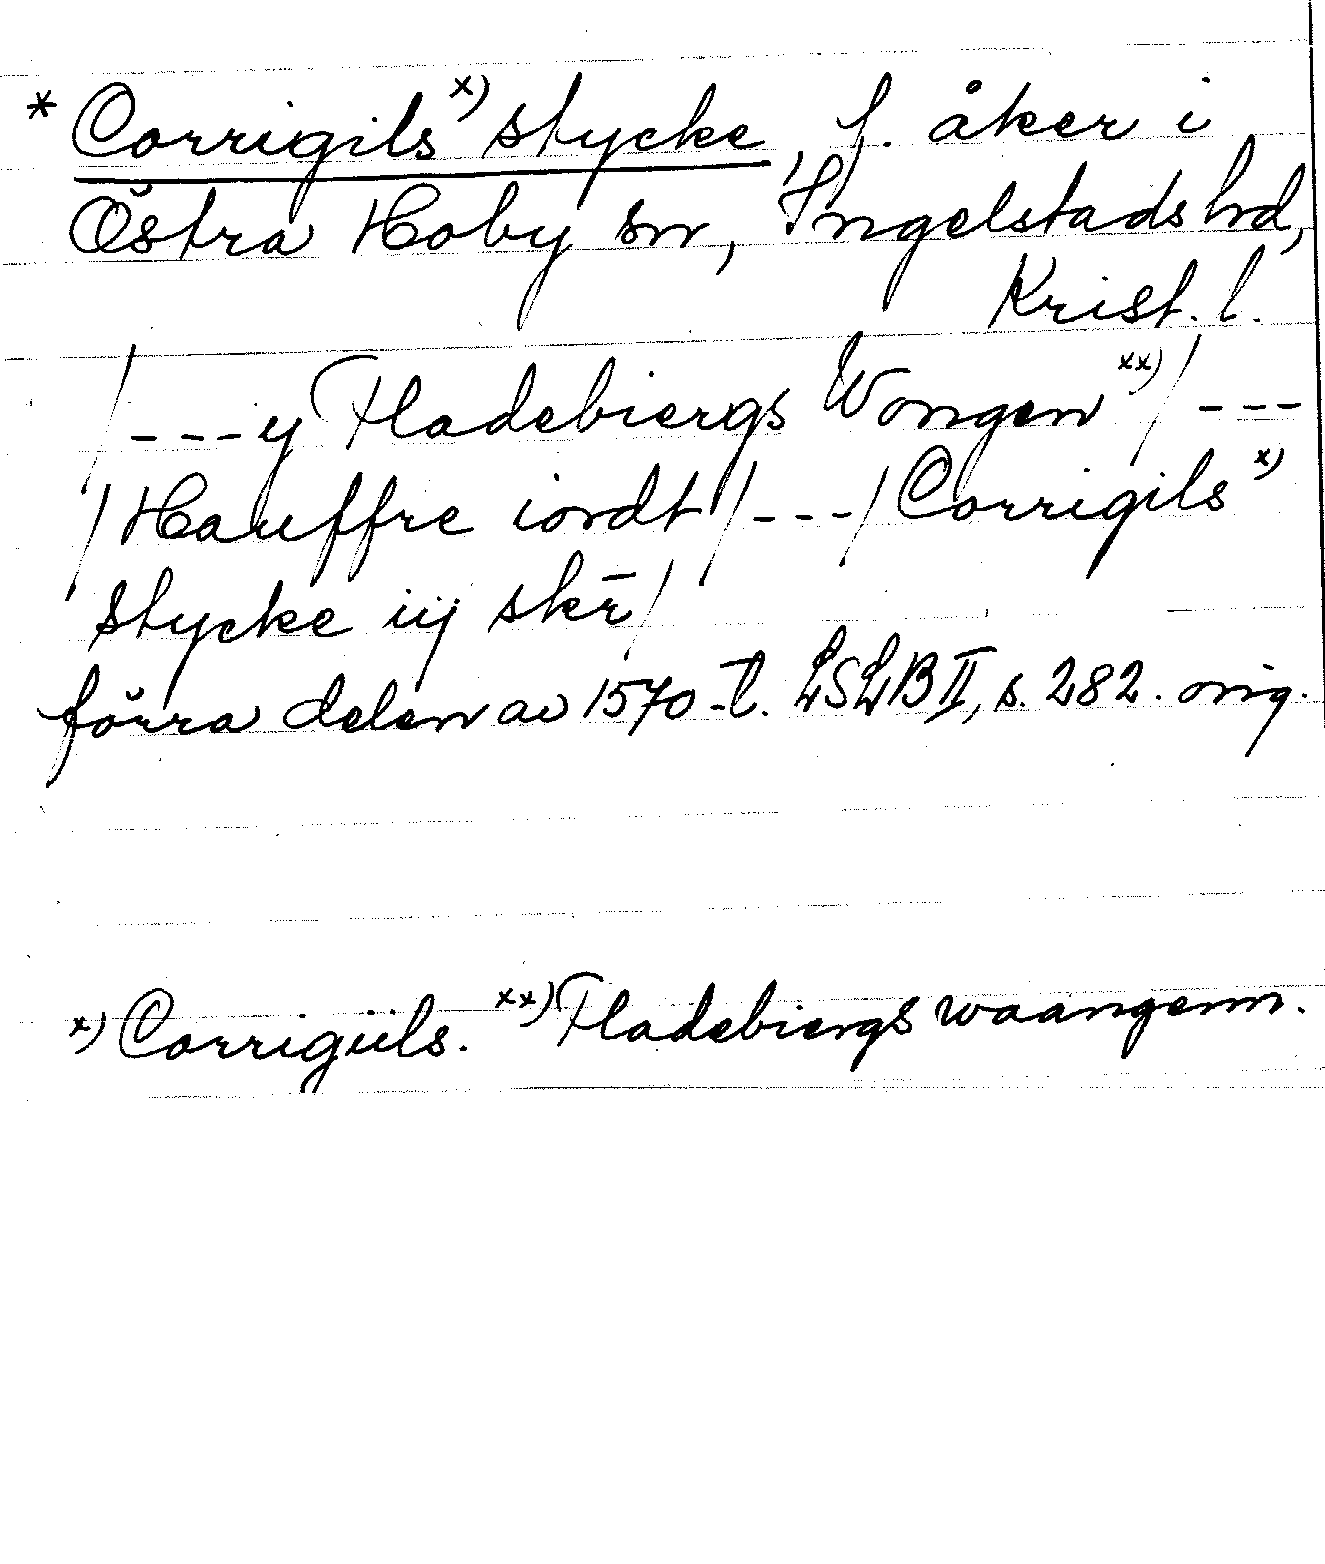 * Corrigils x) stycke, f. åker i
Östra Hoby sn, Ingelstads hd,
Krist. l.
/---y Fladebiergs Wongen xx)/---
/Hauffre iordt/---/Corrigils x)
stycke iij skē/
förra delen av 1570-t. LSLB II, s. 282. orig.
x) Corrigiils. xx) Fladebiergs waangenn.